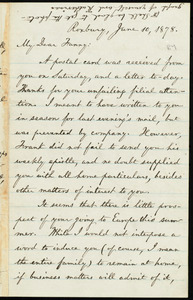 Roxbury, June 10, 1878.
My Dear Fanny:
A postal card was received from
you on Saturday, and a letter to-day.
Thanks for your unfailing filial atten-
tions. I meant to have written to you
in season for last evening's mail, but
was prevented by company. However,
Frank did not fail to send you his
weekly epistle, and no doubt supplied
you with all home particulars, besides
other matters of interest to you.
It seems that there is little pros-
pect of your going to Europe this sum-
mer. While I would not interpose
a word to induce you (of course, I mean
the entire family) to remain at home,
if business matters will admit of it,